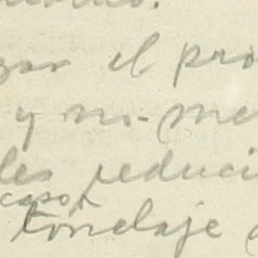 el pro
y no me
les reduci
caso,
tonelaje